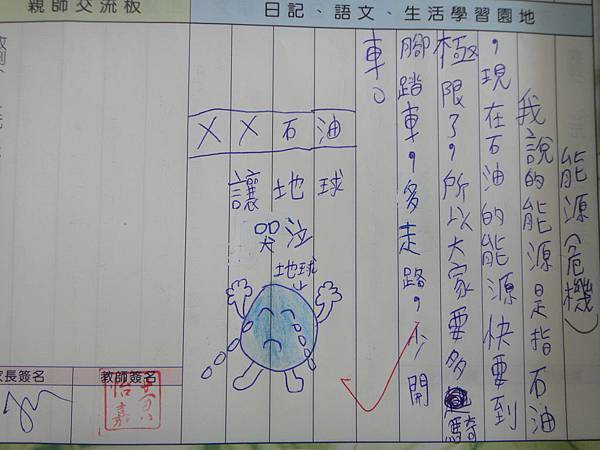 親師交流板
日記、語文、生活學習園地
能源危機）
我說的能源是指石油
，現在石油的能源快要到
極限了，所以大家要多騎
腳踏車，多走路，少開
車。
XX石油
讓地球
哭泣
地球
長簽名
教師簽名
黃怡嘉